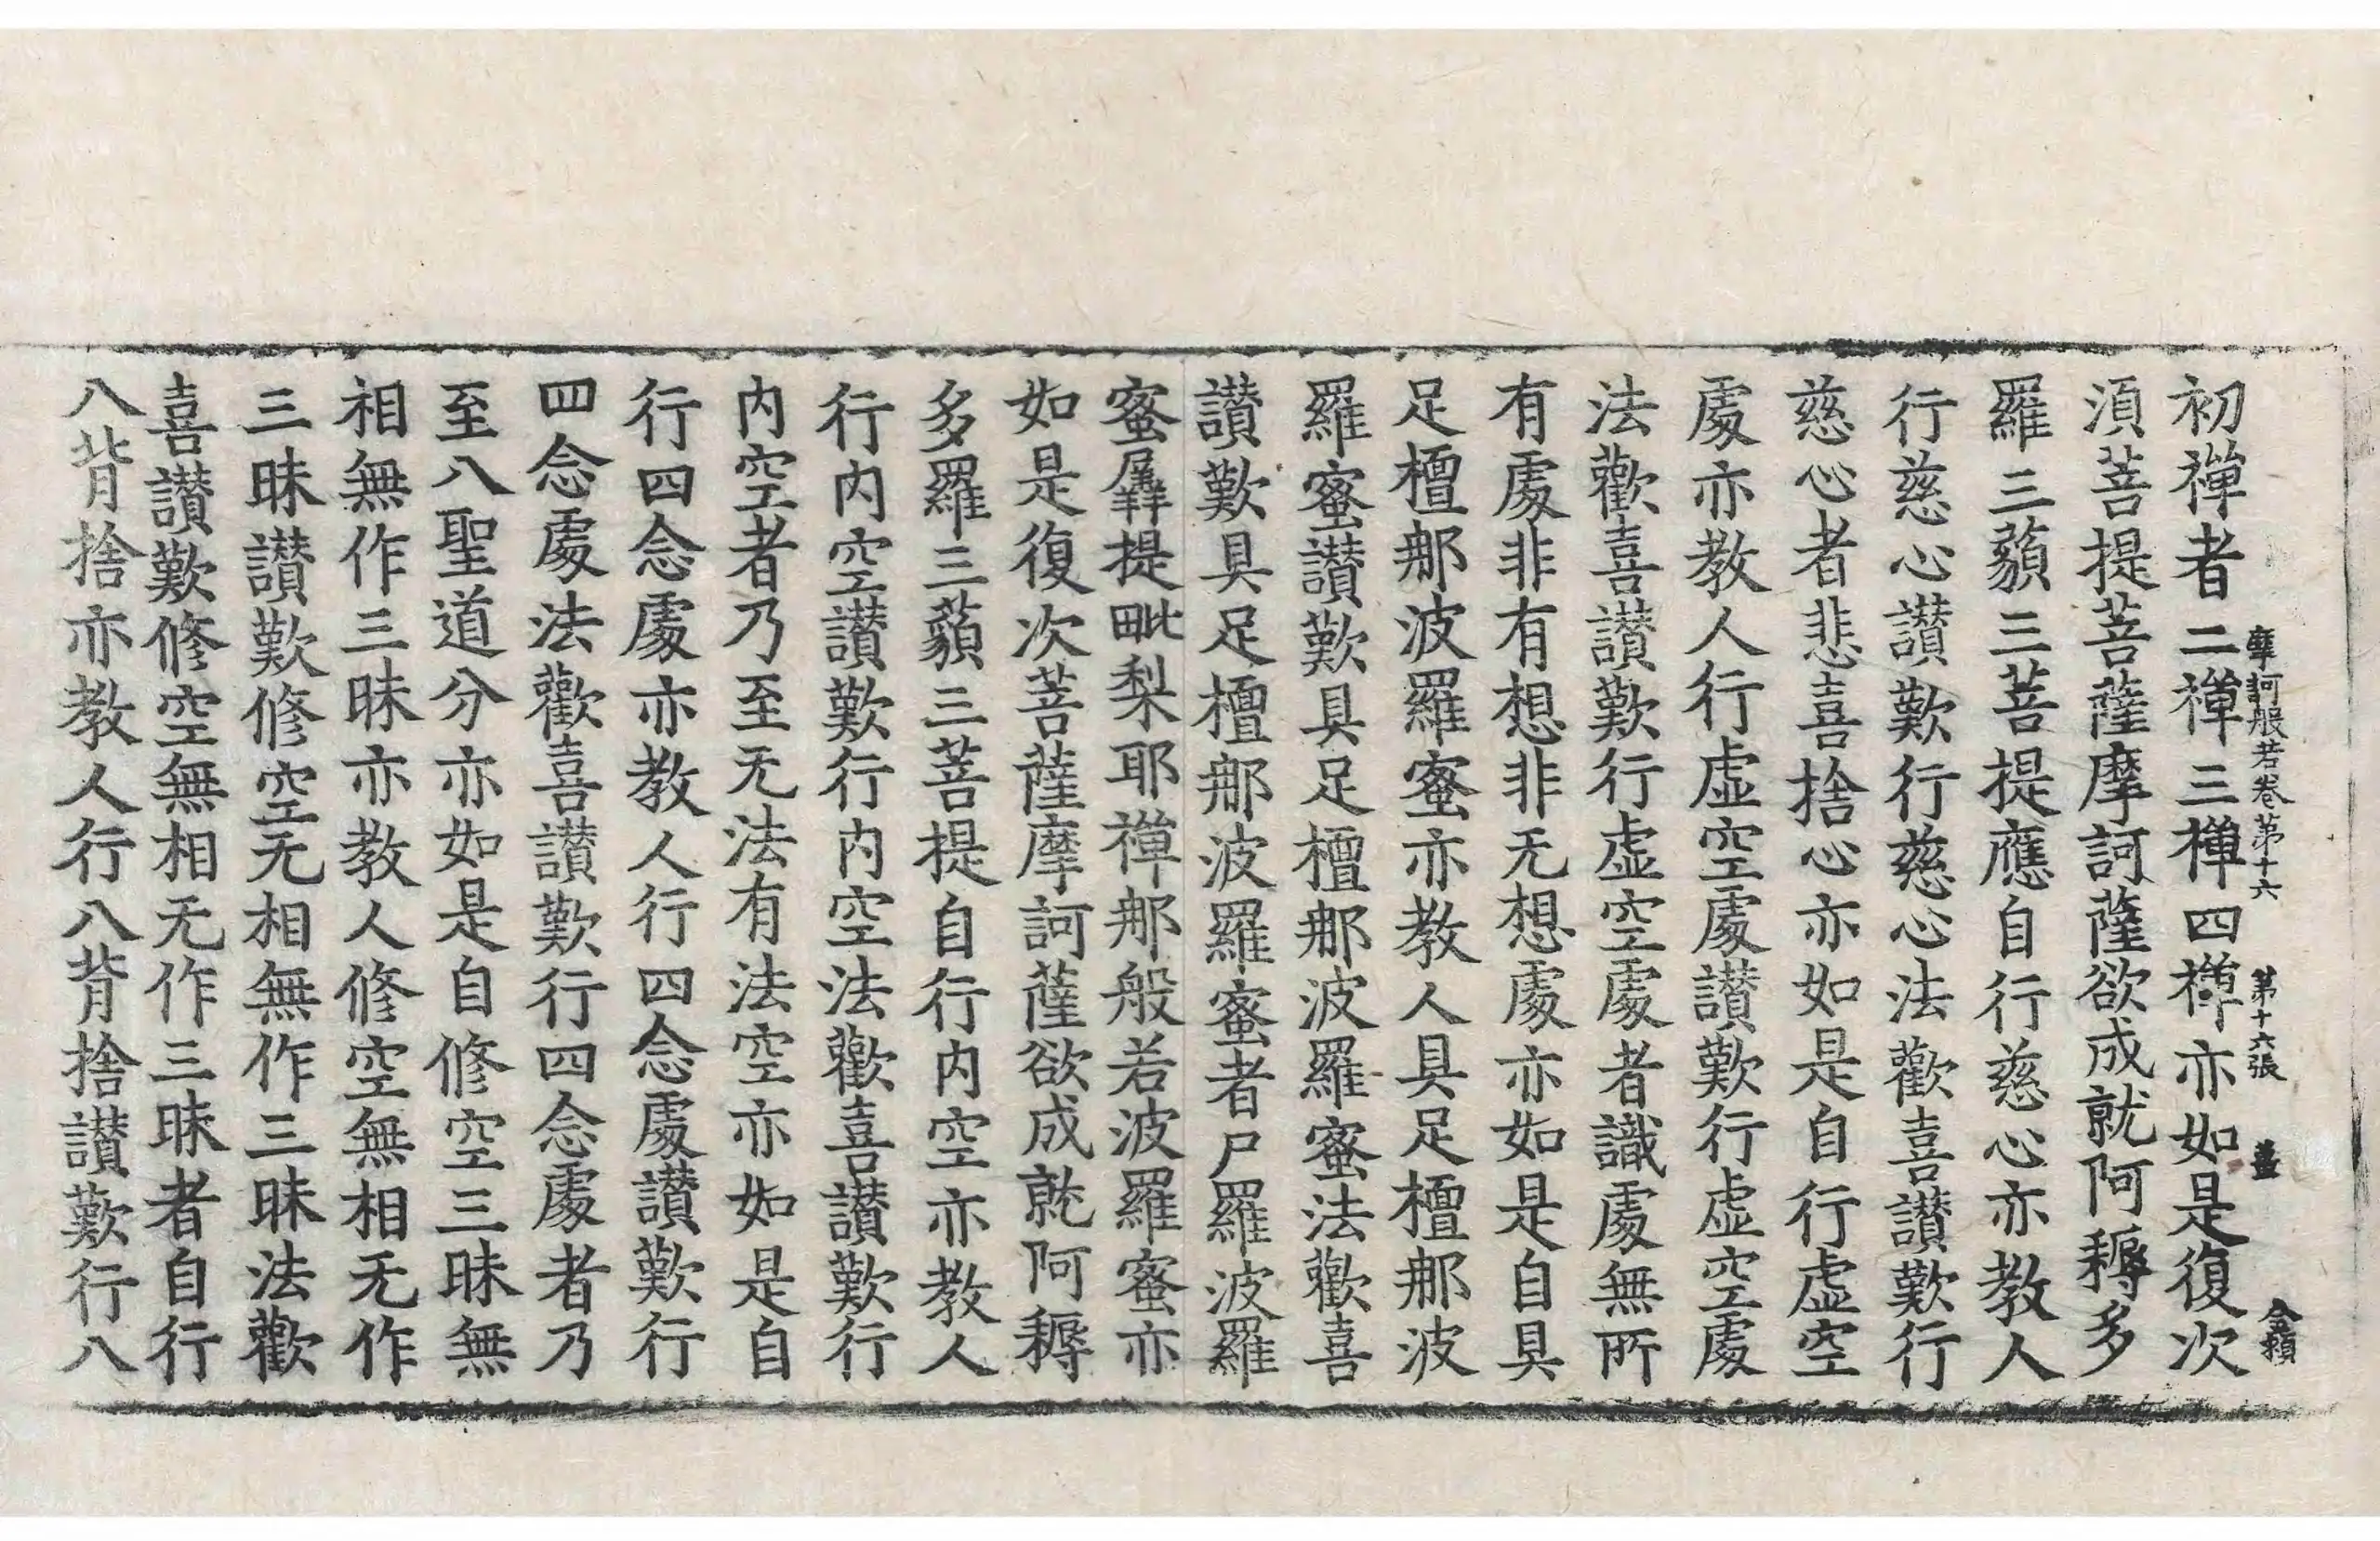 摩訶般若卷第十六 第十六張
初禪者二禪三禪四禪亦如是復次
湏菩提菩薩摩訶薩欲成就阿耨多
羅三藐三菩提應自行慈心亦教人
行慈心讃歎行慈心法歡喜讃歎行
慈心者悲喜捨心亦如是自行虛空
處亦教人行虛空處讃歎行虛空處
法歡喜讃歎行虛空處者識處無所
有處非有想非无想處亦如是自具
足檀那波羅蜜亦教人具足檀那波
羅蜜讃歎具足檀那波羅蜜法歡喜
讃歎具足檀那波羅蜜者尸羅波羅
蜜羼提毗梨耶禪那般若波羅蜜亦
如是復次菩薩摩訶薩欲成就阿耨
多羅三藐三菩提自行内空亦教人
行内空讃歎行内空法歡喜讃歎行
内空者乃至无法有法空亦如是自
行四念處亦教人行四念處讃歎行
四念處法歡喜讃歎行四念處者乃
至八聖道分亦如是自修空三昧無
相無作三昧亦教人修空無相无作
三昧讃歎修空无相無作三昧法歡
喜讃歎修空無相无作三昧者自行
八背捨亦教人行八背捨讃歎行八